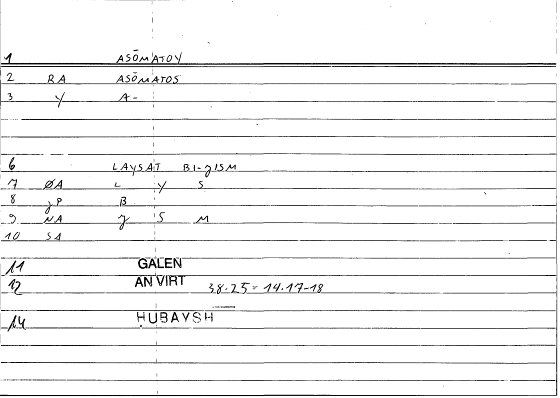 1 ASŌMATOY
2 RA ASŌMATOS
3 Y A-
6 LAYSAT BI-ǧISM
7 ØA L Y S
8 ǧP B
9 NA ǧ S M
10 SA
11 GALEN
12 AN VIRT 38.25 = 14.17-18
14 ḤUBAYSH